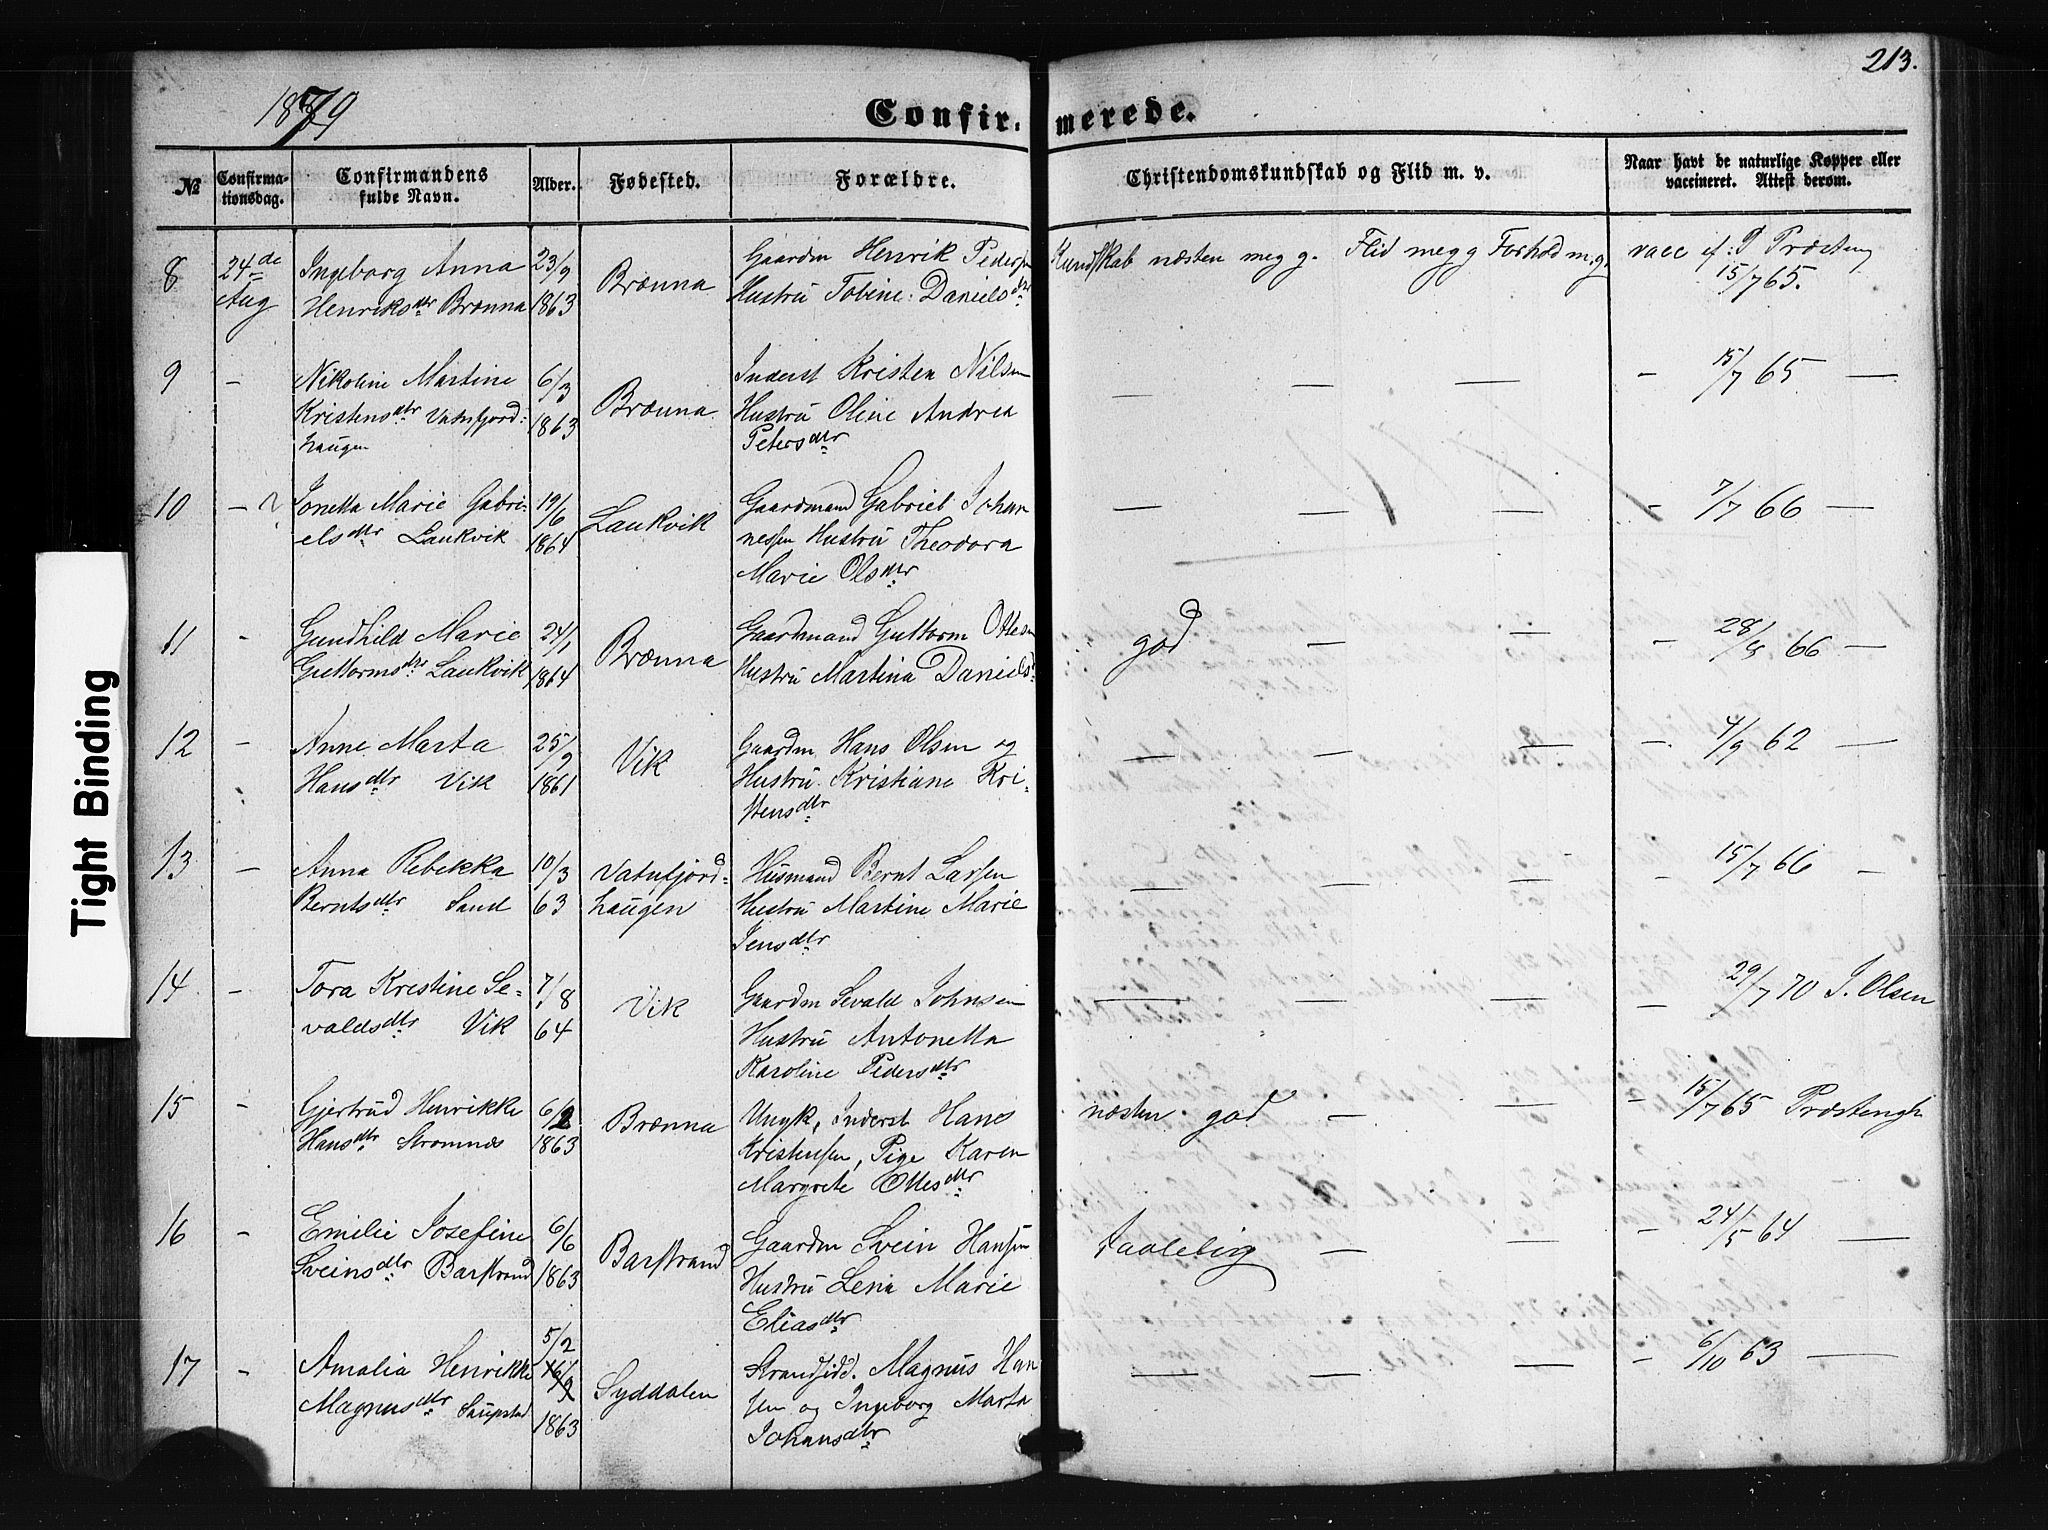 213.
1879
Confirmerede.
№
Confirma-
tionsdag.
Confirmandens
fulde Navn.
Alder.
Fødested.
Forældre.
Christendomskundskab og Flid m. v.
Naar havt de naturlige Kopper eller
vaccineret. Attest derom.
8 24de Ingeborg Anna 23/9 Brænna Gaardm Henrik Pedersen Kundskab næsten meg g. Flid meg g Forhold m,g, vacc ef: P Præsteng
Aug Henriksdtr Brænna 1863 Hustru Tobine Danielsdtr 15/7 65.
9 – Nikoline Martine 6/3 Brænna Inderst Kristen Nilsen — — — – 15/7 65 —
Kristensdtr Vatnfjord- 1863 Hustru Oline Andrea
haugen Petersdtr
10 – Jonetta Marie Gabri- 19/6 Laukvik Gaardmand Gabriel Johan- — — — – 7/7 66 —
elsdtr Laukvik 1864 nessen Hustru Theodora
Marie Olsdtr
11 – Gundhild Marie 24/1 Brænna Gaardmand Guttorm Ottesen god — — – 28/8 66 —
Guttormsdtr Laukvik 1864 Hustru Martina Daniels
12 – Anne Marta 25/9 Vik Gaardm Hans Olsen og — — — – 4/9 62 —
Hansdtr Vik 1861 Hustru Kristiane Kri-
stensdtr
13 – Anna Rebekka 10/3 Vatnfjord- Husmand Bernt Larsen — — — 15/7 66 –
Berntsdtr Sand 63 haugen Hustru Martine Marie
Jensdtr
14 – Tora Kristine Se- 7/8 Vik Gaardm Sevald Johnsen — — — – 29/7 70 J. Olsen
valdsdtr Vik 64 Hustru Antonetta
Karoline Pedersdtr
15 – Gjertrud Henrikke 6/2 Brænna Ungk, Inderst Hans næsten god — — – 15/7 65 Præstengh
Hansdtr Strømnes 1863 Kristensen, Pige Karen
Margrete Ottesdtr
16 – Emilie Josefine 6/6 Barstrand Gaardm Svein Hansen taalelig — — – 24/5 64 —
Sveinsdtr Barstrand 1863 Hustru Lena Marie
Eliasdtr
5/2
17 – Amalia Henrikke 16/9 Syddalen Strandsidd. Magnus Han — — — – 6/10 63 —
Magnusdtr Saupstad 1863 sen og Ingeborg Marta
Johansdtr
Tight Binding